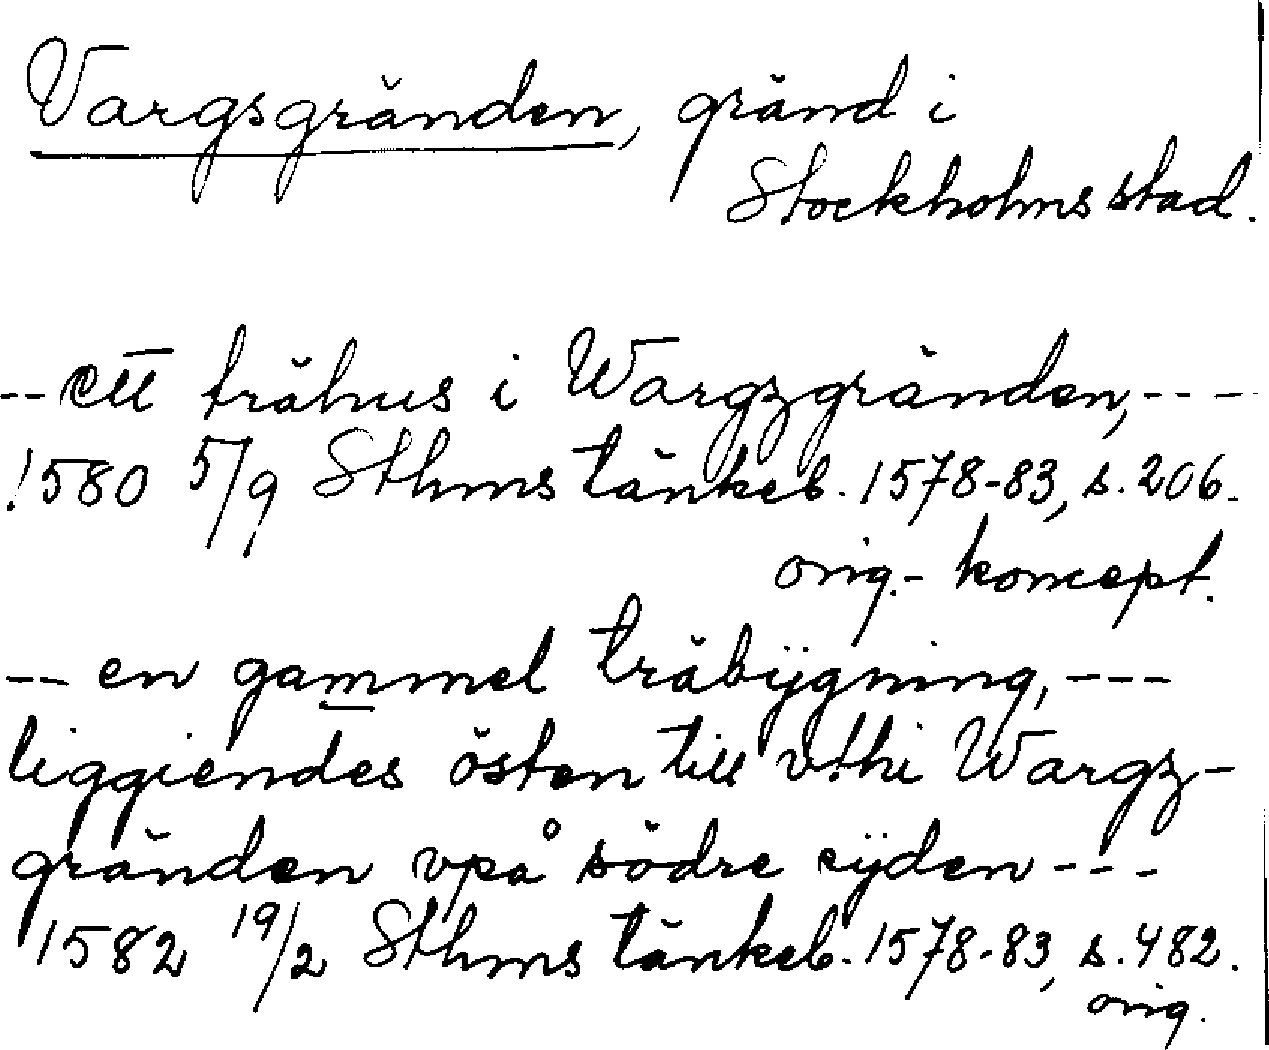 Vargsgränden, gränd i
Stockholms stad.
-- ett trähus i Wargzgränden, ---
1580 5/9 Sthms tänkeb. 1578-83, s. 206.
orig.- koncept.
-- en gammel träbÿgning, ---
liggiendes östen till vthi Wargz-
gränden vpå södre sÿden ---
1582 19/2 Sthms tänkeb. 1578-83, s. 482.
orig.